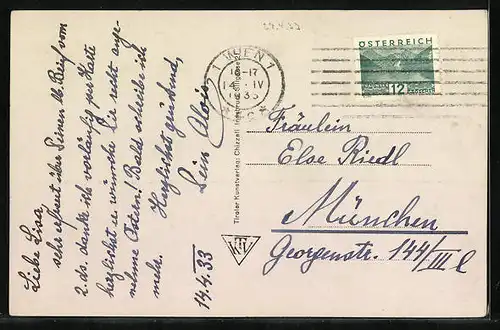 14.4.33
1 WIEN 1
16-17
14. IV
1933
ÖSTERREICH
12
Liebe Lisa,
sehr erfreut über Deinen lb. Brief vom
2. ds. danke ich vorläufig per Karte
herzlichst u. wünsche Dir recht ange-
nehme Ostern! Bald schreibe ich
mehr. Herzlichst grüssend,
Dein Alois
14.4.33
Tiroler Kunstverlag Chizzali
KTC
Fräulein
Else Riedl
München
Georgenstr. 144/III l